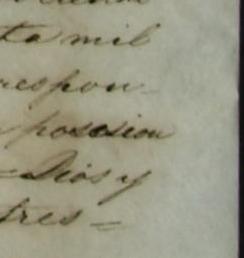 ta mil
respon-
posesion
= Dios y
tres =